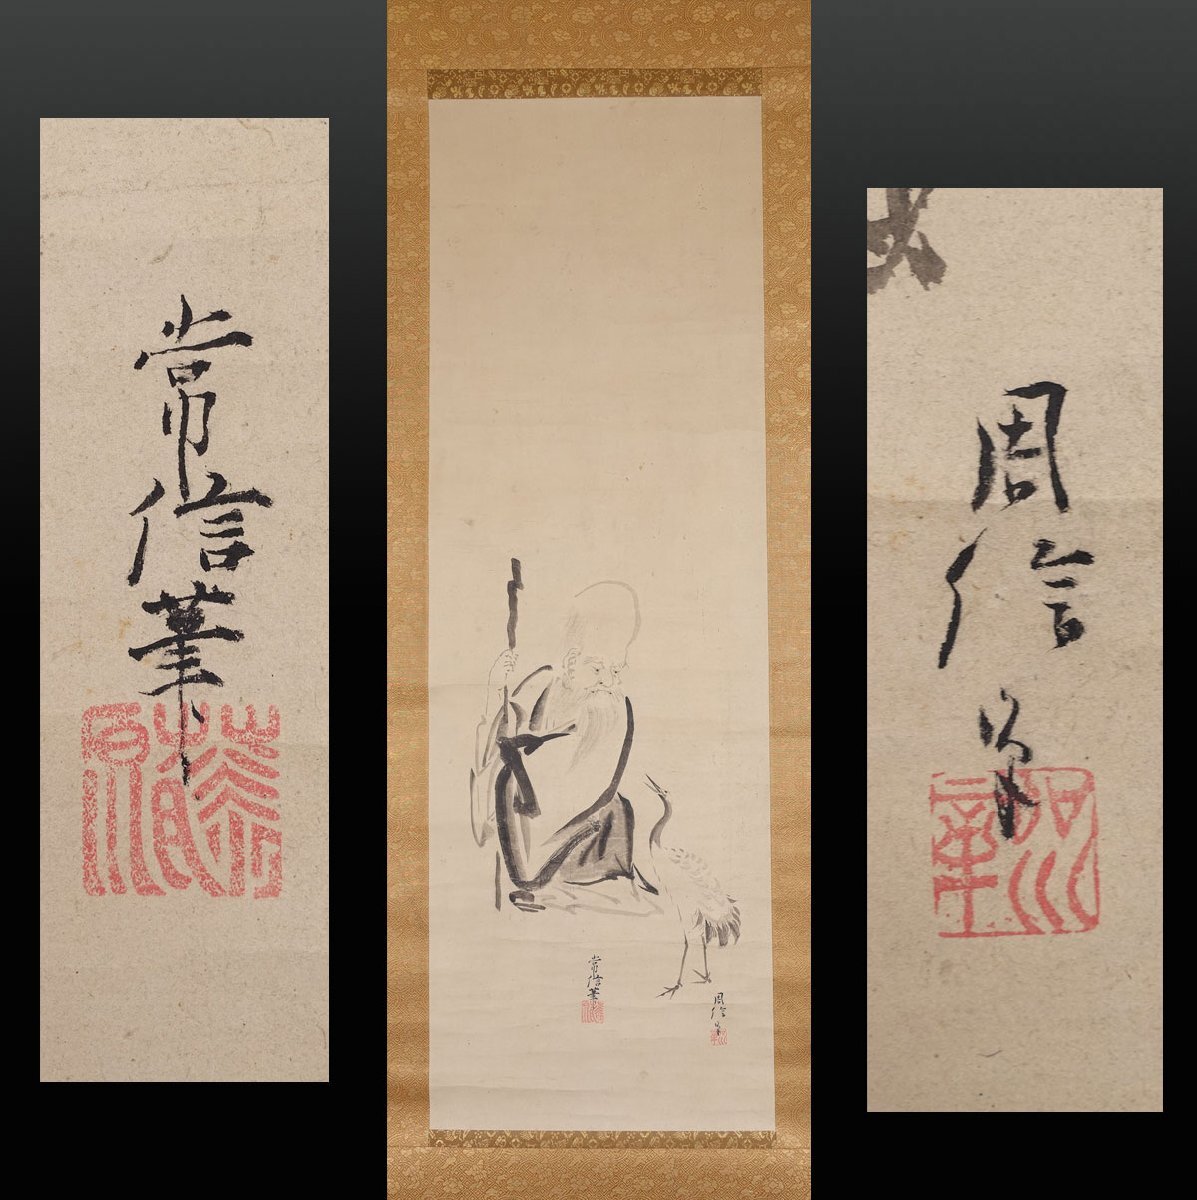 常信筆
常信筆
周信筆
周信筆